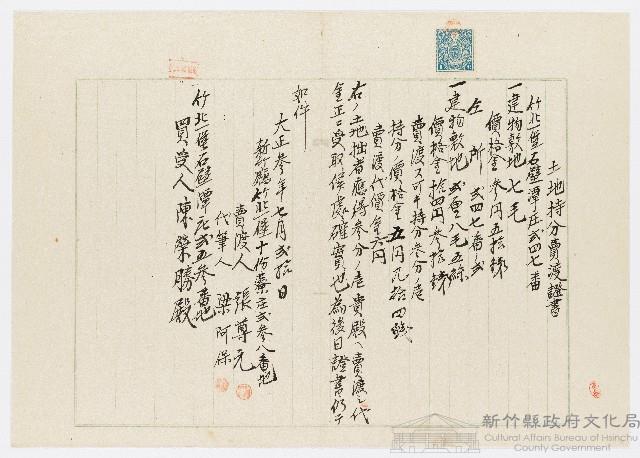 土地持分賣渡證書
竹北堡石壁潭庄貳四七番
一建物敷地七毛
價格金參円五拾錢
仝所貳四七番ノ貳
一建物敷地貳厘八毛五絲
價格金拾四円參拾錢
賣渡スヿ可キ持分參分ノ壱
持分ノ價格金五円九拾四錢
賣渡代價金六円
右ノ土地拙者應得參分ノ壱貴殿ヘ賣渡シ代
金正ニ受取候處確實也為後日證書仍テ
如件
大正參年七月貳拾日
新竹廳竹北堡十份藔庄貳參八番地
賣渡人 張尊元
代筆人 梁阿保
竹北堡石壁潭庄貳五參番地
買受人 陳榮勝殿
新竹縣政府文化局
Cultural Affairs Bureau of Hsinchu
County Government